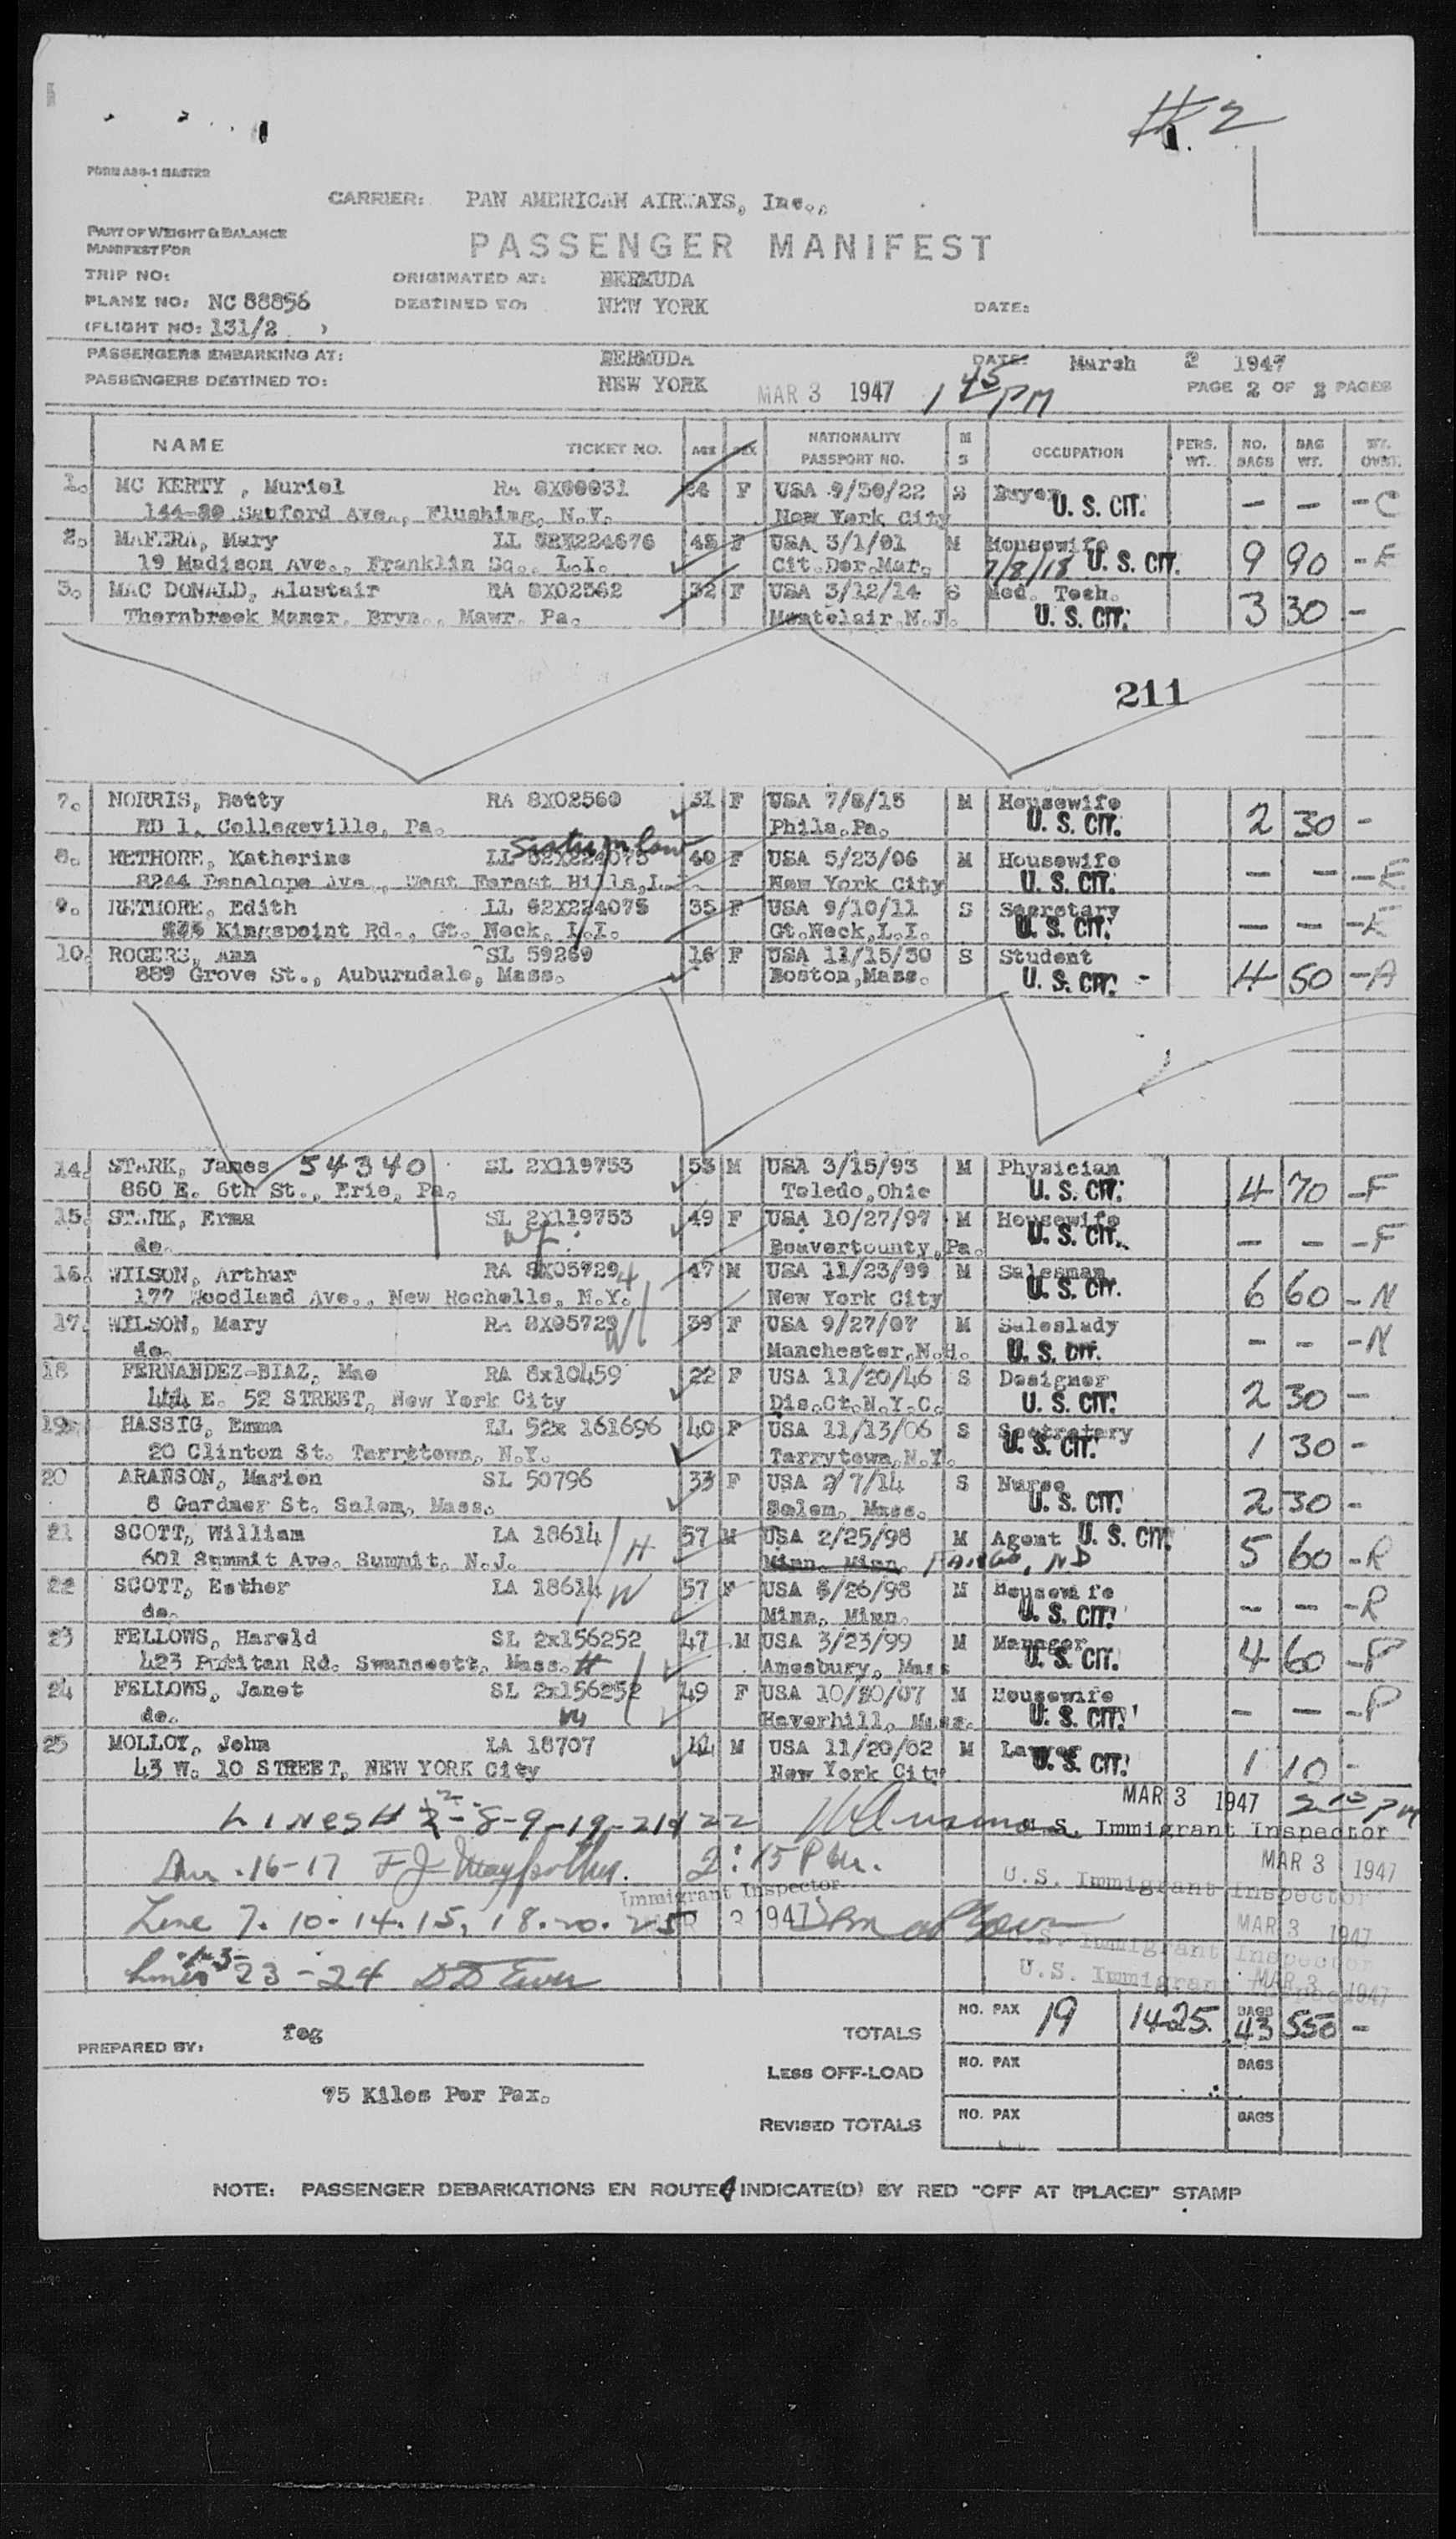 #2
FORM A86-1 MASTER
CARRIER: PAN AMERICAN AIRWAYS, Inc.,
PART OF WEIGHT & BALANCE
MANIFEST FOR
PASSENGER MANIFEST
TRIP NO: ORIGINATED AT: BERMUDA
PLANE NO: NC 88856 DESTINED TO: NEW YORK DATE:
(FLIGHT NO: 131/2 )
PASSENGERS EMBARKING AT: BERMUDA DATE: March 2 1947
PASSENGERS DESTINED TO: NEW YORK MAR 3 1947 1 45 PM PAGE 2 OF 2 PAGES
NAME TICKET NO. AGE SEX NATIONALITY PASSPORT NO. M S OCCUPATION PERS. WT. NO. BAGS BAG WT. WT. OVST.
1. MC KERTY , Muriel RA 8X00031 24 F USA 9/30/22 S Buyer U. S. CIT. — — - C
Ave., Flushing, N.Y. New York City
2. MAFERA, Mary LL F USA 3/1/01 M Housewife 9 90 - E
19 Madison Ave., Franklin Sq., L.I. Cit. Der. Mar. 7/8/18 U. S. CIT.
3. MAC DONALD, Alastair RA 8X02562 32 F USA 3/12/14 S Med. Tech. 3 30 -
Thornbrook Manor, Bryn., Mawr. Pa. Montclair N.J. U. S. CIT.
211
7. NORRIS, Betty RA 8X02560 31 F USA 7/8/15 M Housewife 2 30 -
RD 1, Collegeville, Pa. Phila. Pa. U. S. CIT.
8. RETHORE, Katherine LL 52X224075 40 F USA 5/23/06 M Housewife — — - E
8244 Penelope Ave., West Forest Hills, L.I. New York City U. S. CIT.
9. RETHORE, Edith LL 52X224075 35 F USA 9/10/11 S Secretary — — - E
Kingspoint Rd., Gt. Neck, L.I. Gt. Neck, L.I. U. S. CIT.
10. ROGERS, Ann SL 59269 16 F USA 11/15/30 S Student 4 50 - A
889 Grove St., Auburndale, Mass. Boston, Mass. U. S. CIT. -
14. STARK, James 54340 SL 2X119753 53 M USA 3/15/93 M Physician 4 70 - F
860 E. 6th St., Erie, Pa. Toledo, Ohio U. S. CIT.
15. STARK, Erma SL 2X119753 49 F USA 10/27/97 M Housewife — — - F
do. wf. Beavercounty, Pa. U. S. CIT.
16. WILSON, Arthur RA 8X05729 47 M USA 11/23/99 M Salesman 6 60 - N
177 Woodland Ave., New Rochelle, N.Y. H New York City U. S. CIT.
17. WILSON, Mary RA 8X05729 39 F USA 9/27/07 M Saleslady — — - N
do. W Manchester, N.H. U. S. CIT.
18 FERNANDEZ-BIAZ, Mae RA 8x10459 22 F USA 11/20/46 S Designer 2 30 -
444 E. 52 STREET, New York City Dis. Ct. N.Y.C. U. S. CIT.
19 HASSIG, Emma LL 52x 161696 40 F USA 11/13/06 S Sectretary 1 30 -
20 Clinton St. Tarrytown, N.Y. Tarrytown, N.Y. U. S. CIT.
20 ARANSON, Marion SL 50796 33 F USA 2/7/14 S Nurse 2 30 -
8 Gardner St. Salem, Mass. Salem, Mass. U. S. CIT.
21 SCOTT, William LA 18614 H 57 M USA 2/25/98 M Agent U. S. CIT. 5 60 - R
601 Summit Ave. Summit, N.J. Minn. Minn. Fargo, ND
22 SCOTT, Esther LA 18614 W 57 F USA 5/26/98 M Housewife — — - R
do. Minn, Minn. U. S. CIT.
23 FELLOWS, Harold SL 2x156252 47 M USA 3/23/99 M Manager 4 60 - P
423 Puritan Rd. Swanscott, Mass. H Amesbury, Mass U. S. CIT.
24 FELLOWS, Janet SL 2x156252 49 F USA M Housewife — — - P
do. W Haverhill, Mass. U. S. CIT.
25 MOLLOY, John LA 18707 44 M USA 11/20/02 M Lawyer 1 10 -
43 W. 10 STREET, NEW YORK City New York City U. S. CIT.
Lines # 2-8-9-19-21 & 22 MAR 3 1947 2 15 PM
U.S. Immigrant Inspector
16-17 2:15 PM. MAR 3 1947
U.S. Immigrant Inspector
Immigrant Inspector
Line 7. 10-14.15, 18.20.25 MAR 3 1947 MAR 3 1947
U.S. Immigrant Inspector
Lines 1-3- 23-24 U.S. Immigrant MAR 3 1947
PREPARED BY: feg TOTALS NO. PAX 19 1425 BAGS 43 550 -
LESS OFF-LOAD NO. PAX BAGS
75 Kilos Per Pax.
REVISED TOTALS NO. PAX BAGS
NOTE: PASSENGER DEBARKATIONS EN ROUTE INDICATE(D) BY RED "OFF AT (PLACE)" STAMP